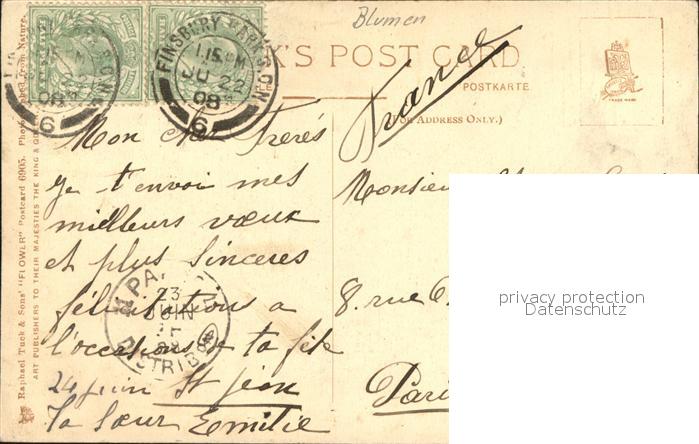 Blumen
K'S POST CARD
POSTKARTE
(FOR ADDRESS ONLY.)
TRADE MARK
FINSBURY PARK STN
1.15 PM
JU 22
08
6
France
Mon Frerés
Je t'envoi mes
meilleurs vœux
et plus sinceres
félicitations a
l'occasions ta fête
24 juin St jean
Ta Sœur Emilie
Monsieur
8. rue
Paris
PA
23
JUIN
DISTRIB
Raphael Tuck & Sons' "FLOWER" Postcard 6905. Photographed from Nature.
ART PUBLISHERS TO THEIR MAJESTIES THE KING & Q
privacy protection
Datenschutz